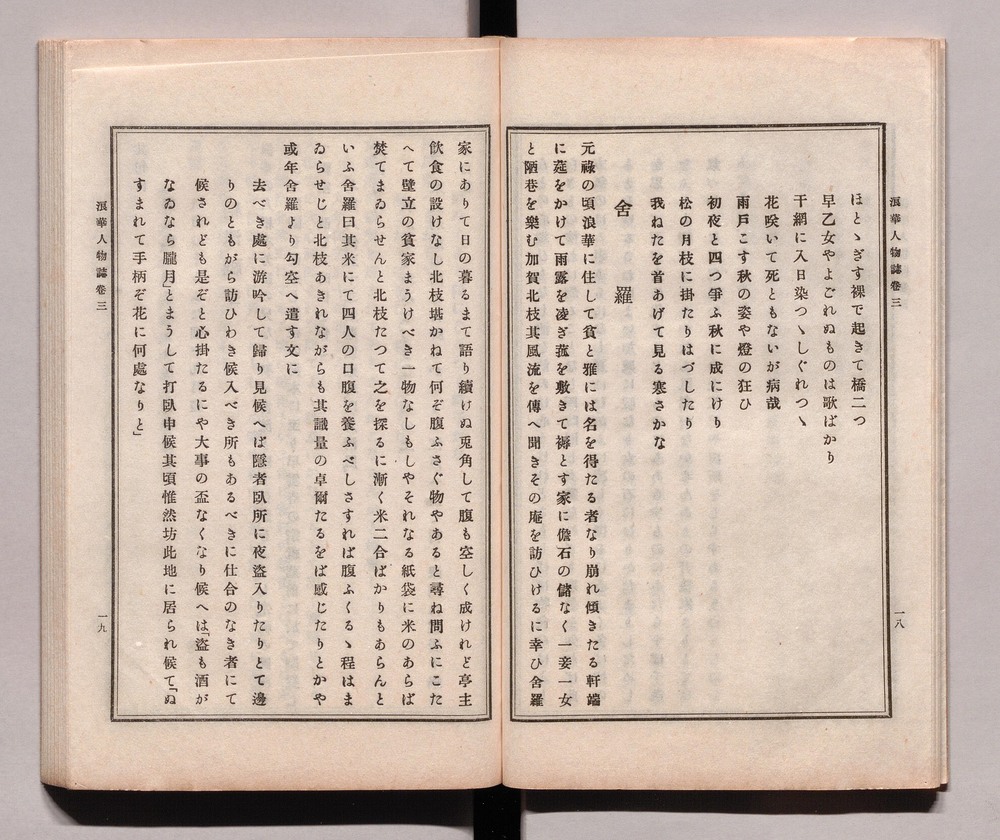 浪華人物誌卷三
一八
ほとゝぎす裸で起きて橋二つ
早乙女やよごれぬものは歌ばかり
干網に入日染つゝしぐれつゝ
花咲いて死ともないが病哉
雨戸こす秋の姿や燈の狂ひ
初夜と四つ爭ふ秋に成にけり
松の月枝に掛たりはづしたり
我ねたを首あげて見る寒さかな
舍羅
元祿の頃浪華に住して貧と雅には名を得たる者なり崩れ傾きたる軒端
に莚をかけて雨露を凌ぎ菰を敷きて褥とす家に儋石の儲なく一妾一女
と陋巷を樂む加賀北枝其風流を傳へ聞きその庵を訪ひけるに幸ひ舍羅
家にありて日の暮るまて語り續けぬ兎角して腹も空しく成けれど亭主
飮食の設けなし北枝堪かねて何ぞ腹ふさぐ物やあると尋ね問ふにこた
へて壁立の貧家まうけべき一物なしもしやそれなる紙袋に米のあらば
焚てまゐらせんと北枝たつて之を探るに漸く米二合ばかりもあらんと
いふ舍羅曰其米にて四人の口腹を養ふべしさすれば腹ふくるゝ程はま
ゐらせじと北枝あきれながらも其識量の卓爾たるをば感じたりとかや
或年舍羅より勾空へ遣す文に
去べき處に游吟して歸り見候へば隱者臥所に夜盜入りたりとて邊
りのともがら訪ひわき候入べき所もあるべきに仕合のなき者にて
候されども是ぞと心掛たるにや大事の盃なくなり候へは「盜も酒が
なゐなら朧月」とまうして打臥申候其頃惟然坊此地に居られ候て「ぬ
すまれて手柄ぞ花に何處なりと」
浪華人物誌卷三
一九